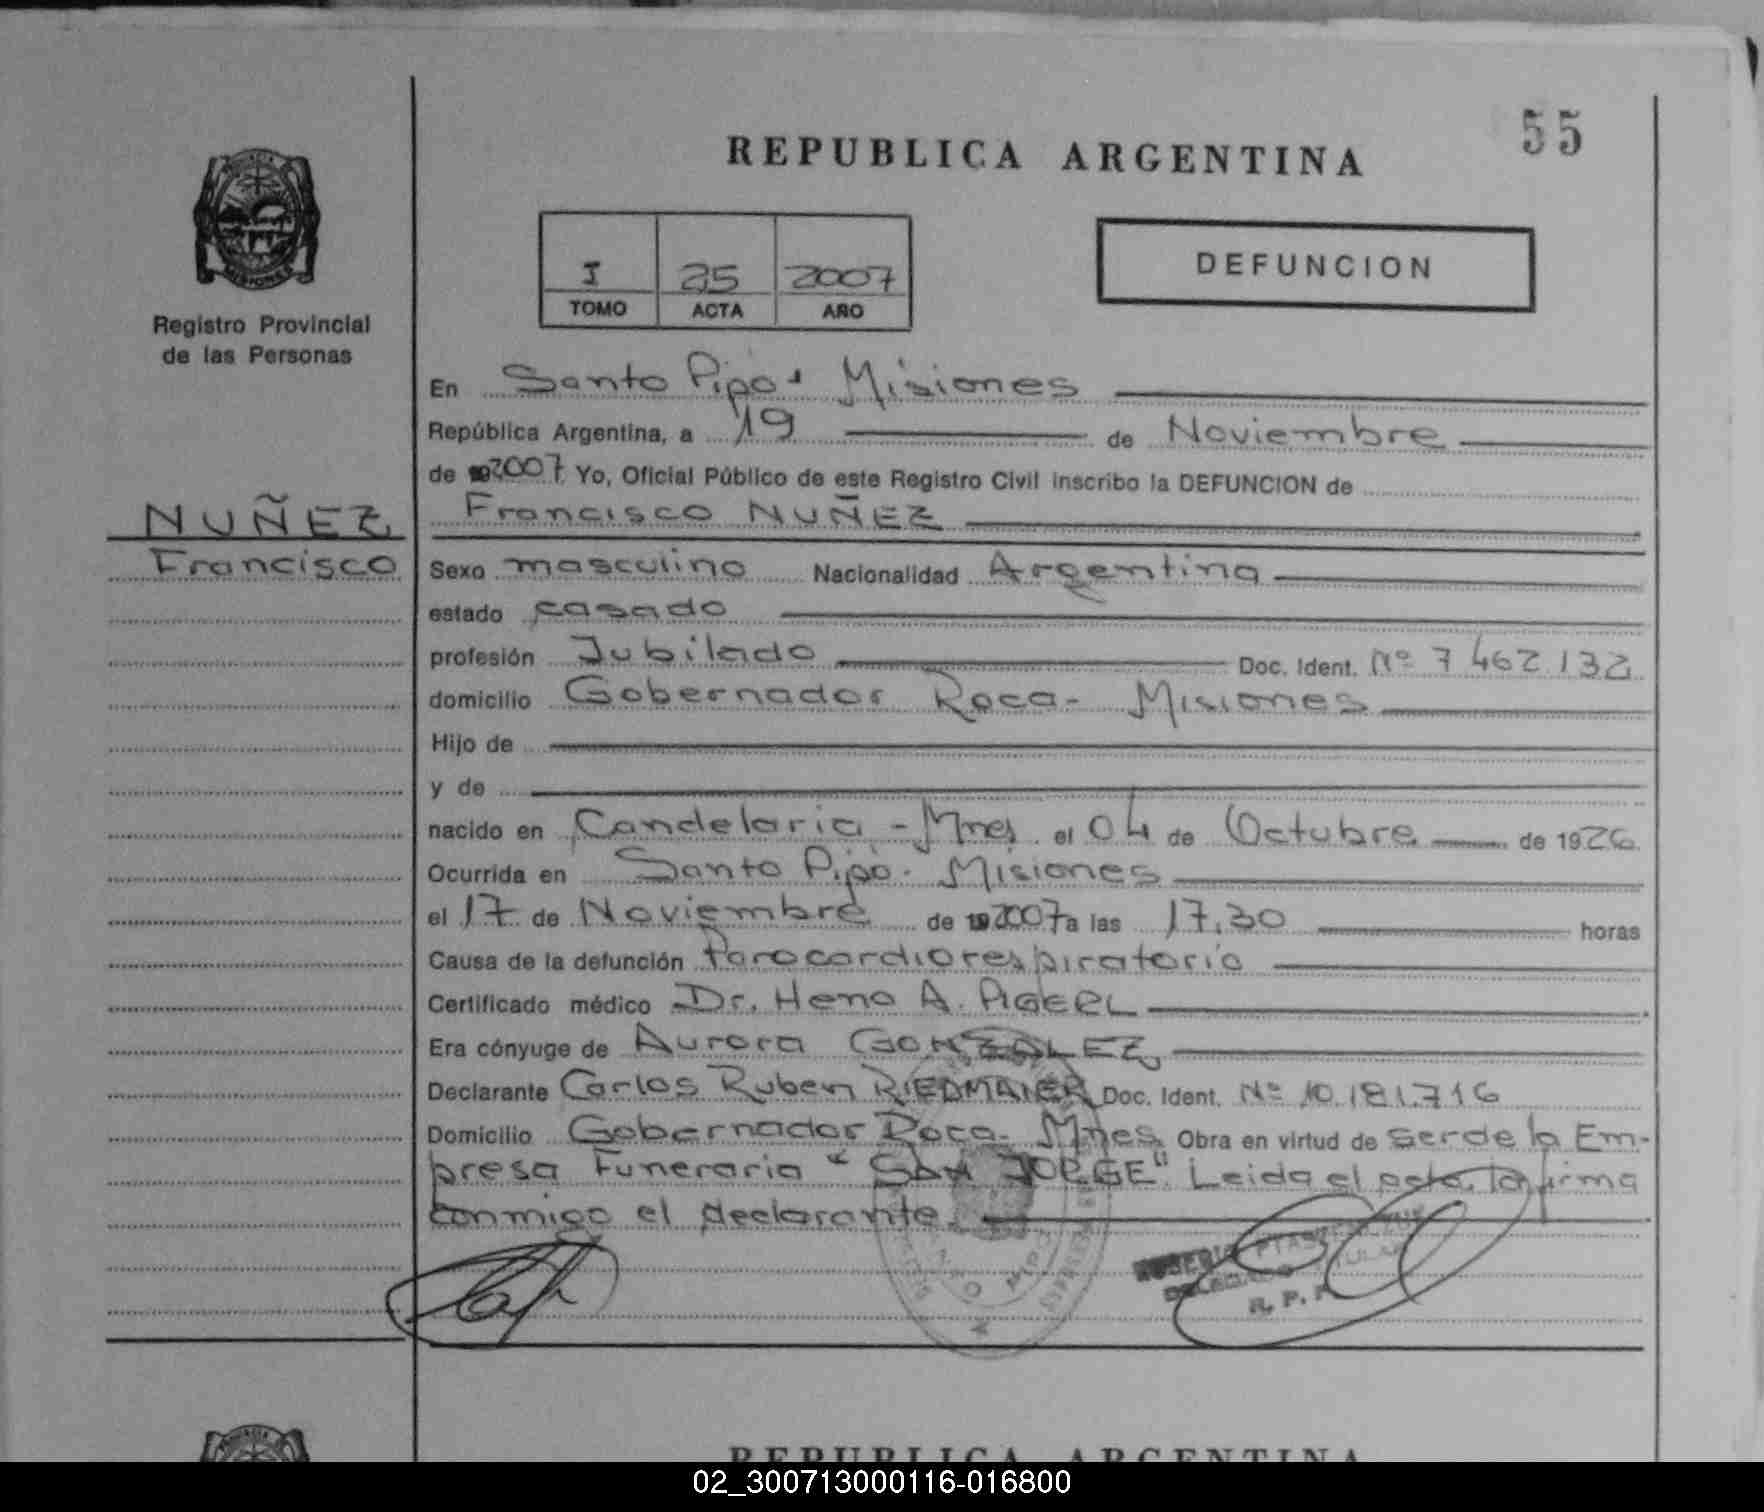 REPUBLICA ARGENTINA
55
I 25 2007
TOMO ACTA AÑO
DEFUNCION
MISIONES
Registro Provincial
de las Personas
En Santo Pipó - Misiones
República Argentina, a 19 de Noviembre
de 2007 Yo, Oficial Público de este Registro Civil inscribo la DEFUNCION de
NUÑEZ
Francisco
Francisco NUÑEZ
Sexo masculino Nacionalidad Argentina
estado casado
profesión Jubilado Doc. Ident. Nº 7.462.132
domicilio Gobernador Roca - Misiones
Hijo de
y de
nacido en Candelaria - Mnes el 04 de Octubre de 1926
Ocurrida en Santo Pipó - Misiones
el 17 de Noviembre de 2007 a las 17,30 horas
Causa de la defunción Parocardiorespiratorio
Certificado médico Dr. A.
Era cónyuge de Aurora GONZALEZ
Declarante Carlos Ruben RIEDMAIER Doc. Ident. Nº 10.181.716
Domicilio Gobernador Roca - Mnes Obra en virtud de ser de la Em-
presa Funeraria "SAN JORGE". Leida el acta, la firma
conmigo el declarante.
R. P. P.
REPUBLICA ARGENTINA
02_300713000116-016800